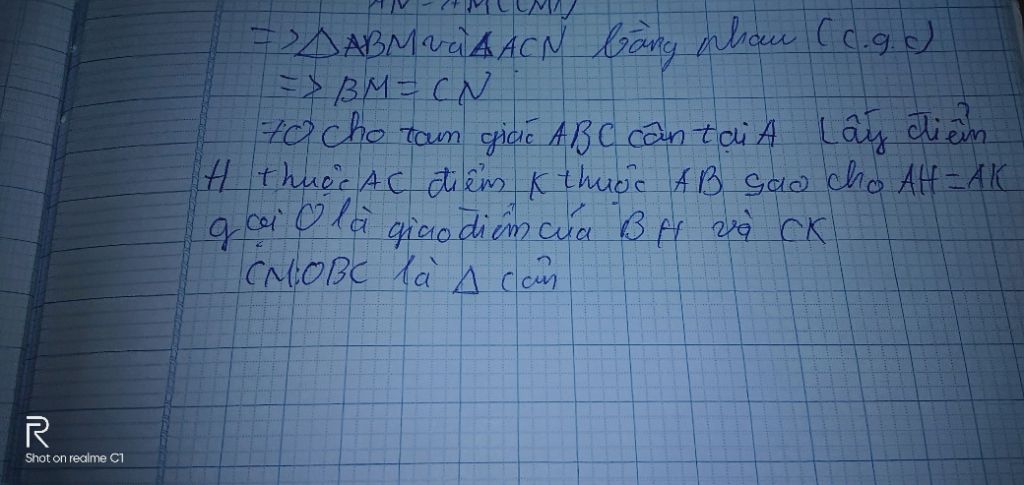 AN = AM (CMT)
=> Δ ABM và Δ ACN bằng nhau (c.g.c)
=> BM = CN
70 cho tam giác ABC cân tại A Lấy điểm
H thuộc AC điểm K thuộc AB sao cho AH = AK
gọi O là giao điểm của BH và CK
CM: OBC là Δ cân
R
Shot on realme C1